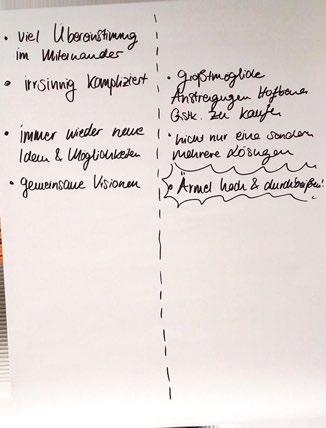 • viel Übereinstimmung
im Miteinander
• irrsinnig kompliziert
• immer wieder neue
Ideen & Möglichkeiten
• gemeinsame Visionen
• größtmögliche
Anstrengungen
Gstk. zu kaufen
• nicht nur eine sondern
mehrere Lösungen
• Ärmel hoch & durchbeißen!